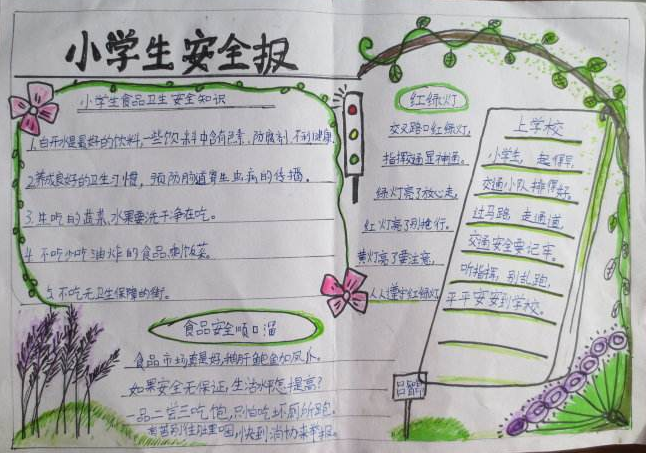 小学生安全报
小学生食品卫生安全知识
1.白开水是最好的饮料,一些饮料中含有色素、防腐剂,不利健康
2.养成良好的卫生习惯,预防肠道寄生虫病的传播。
3.生吃的蔬菜,水果要洗干净在吃。
4.不吃少吃油炸的食品,剩饭菜。
5.不吃无卫生保障的街。
食品安全顺口溜
食品市场真是好,鹅肝鲍鱼加凤爪。
如果安全无保证,生活水平怎提高?
一品二尝三吃饱,只怕吃坏厕所跑。
有苦别往肚里咽,快到消协来举报。
红绿灯
交叉路口红绿灯,
指挥交通显神通。
绿灯亮了放心走,
红灯亮了别抢行。
黄灯亮了要注意,
人人遵守红绿灯
上学校
小学生,起得早,
交通小队排得好。
过马路,走通道,
交通安全要记牢。
听指挥,别乱跑,
平平安安到学校。